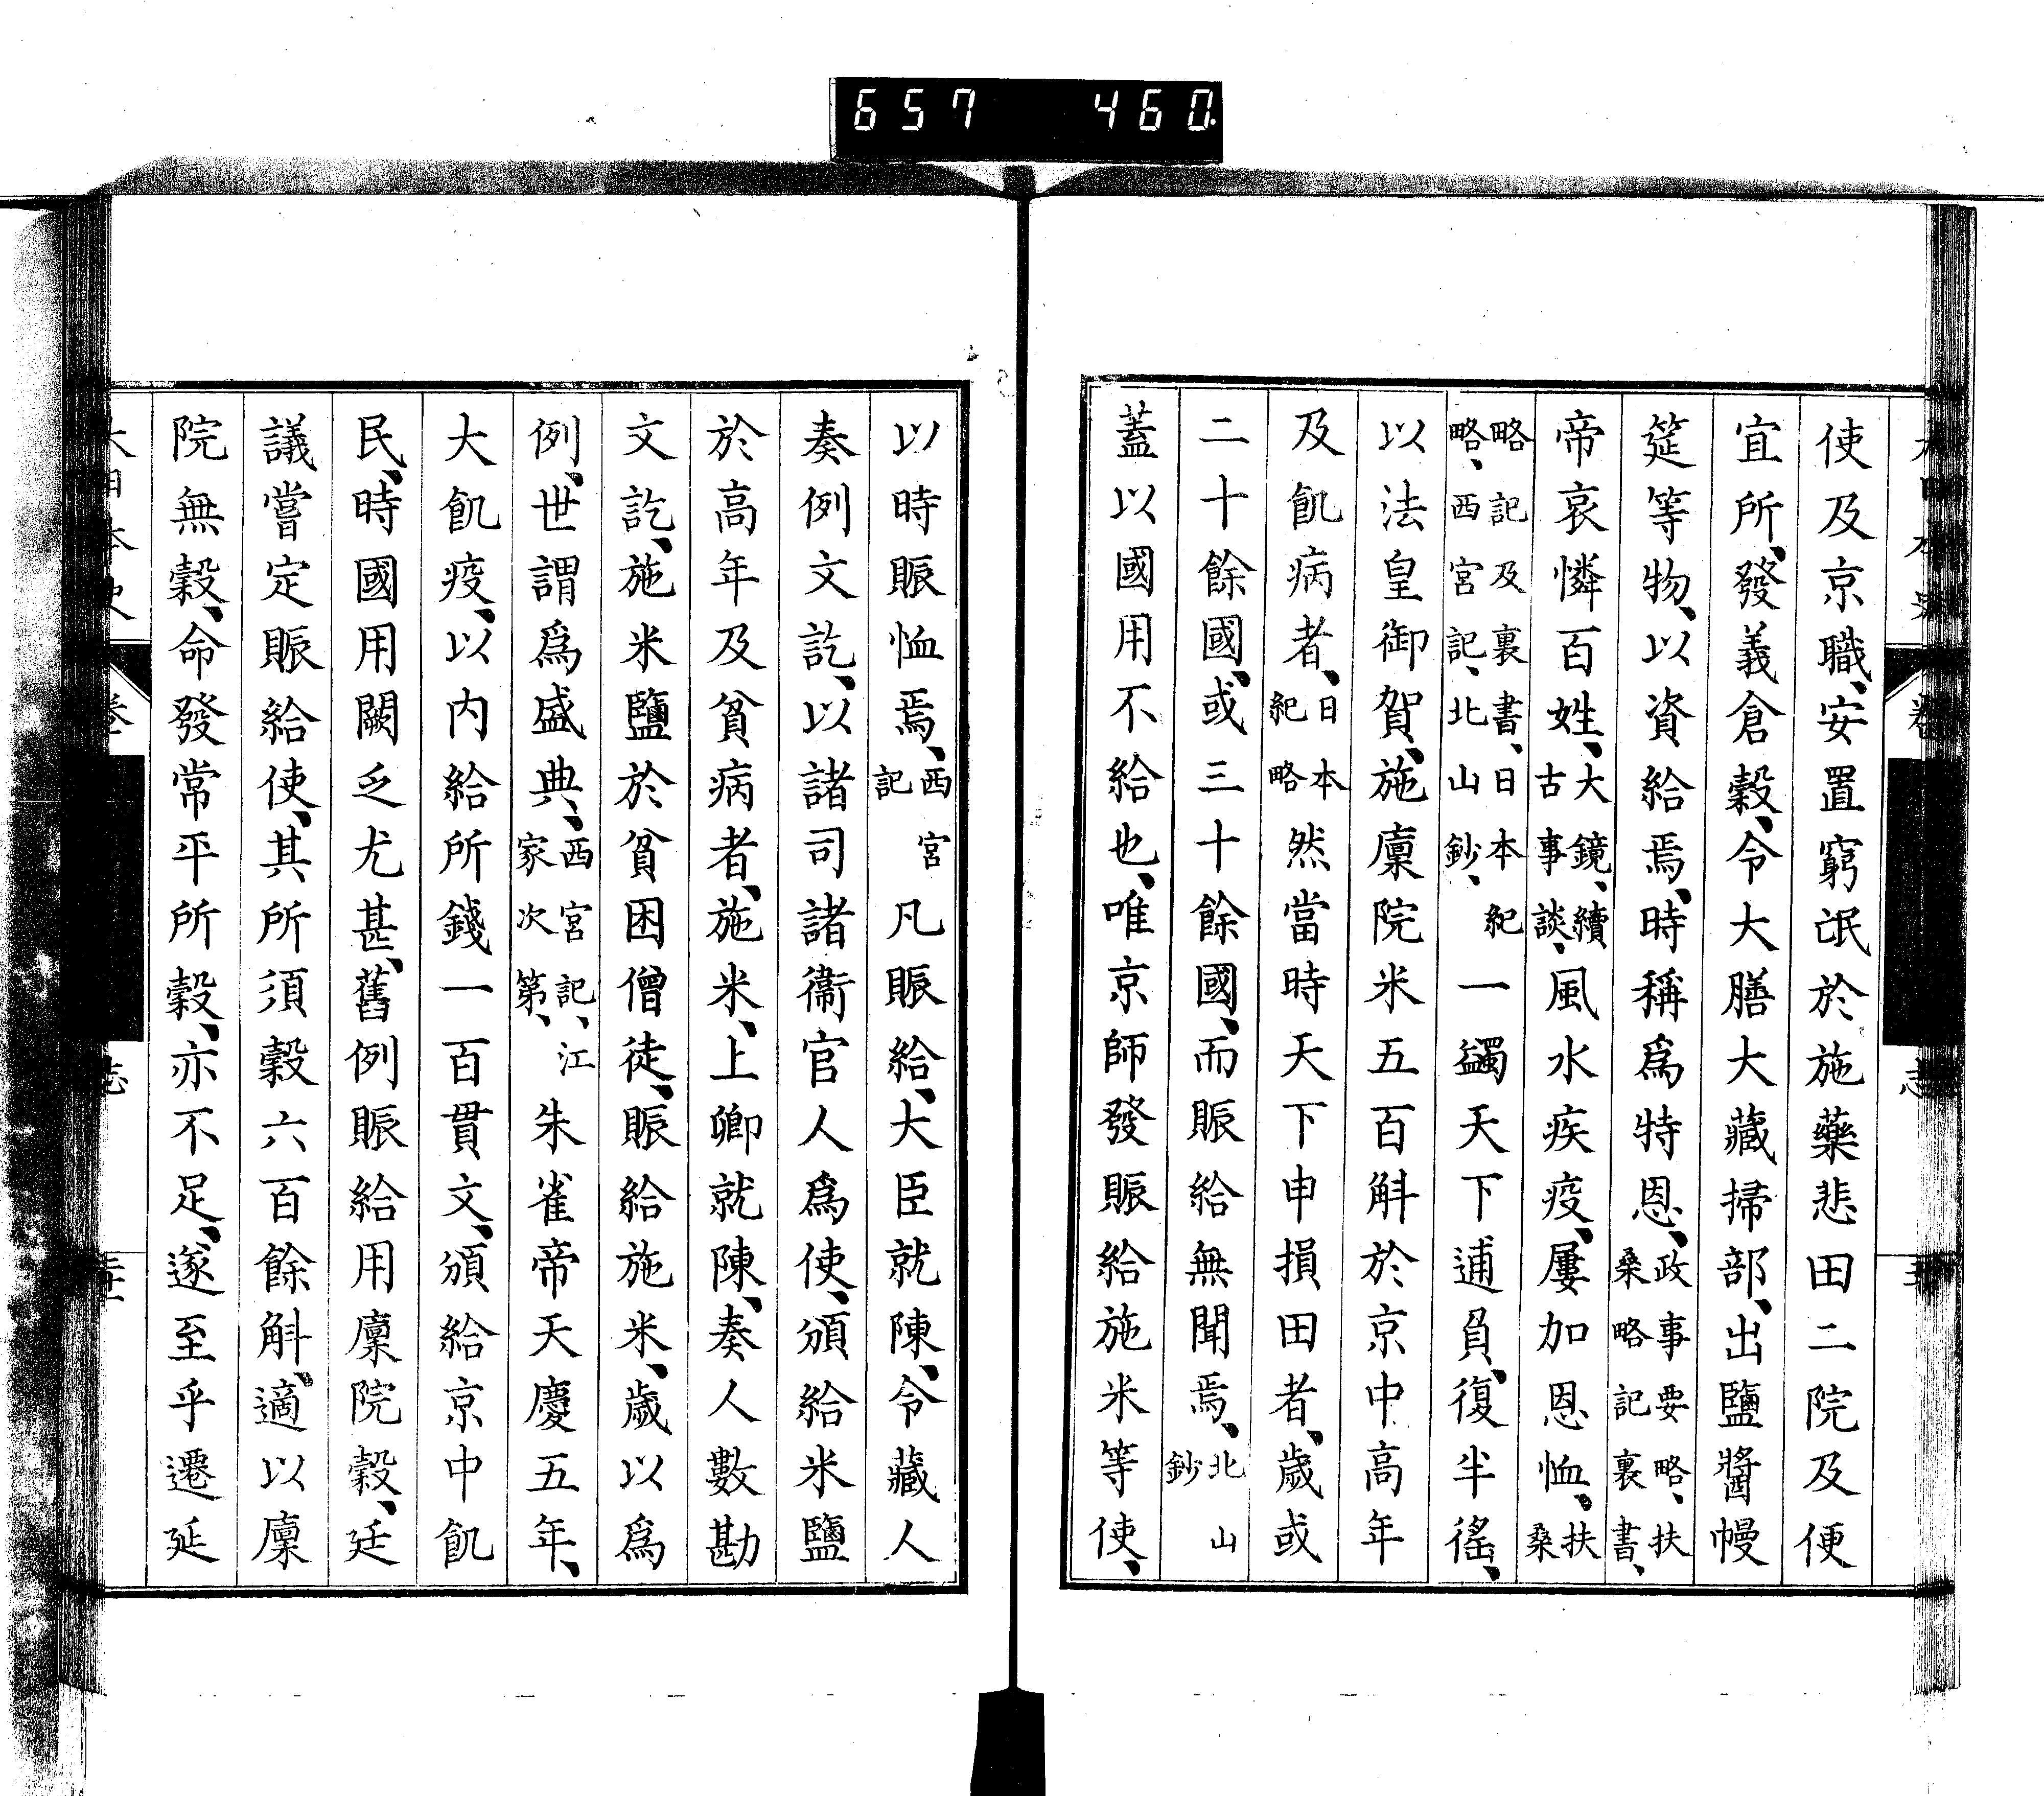 657 460
使及京職、安置窮氓於施藥悲田二院及便
宜所、發義倉穀、令大膳大藏掃部、出鹽醬幔
筵等物、以資給焉、時稱爲特恩、政事要略、扶桑略記裏書、
帝哀憐百姓、大鏡、續古事談、風水疾疫、屢加恩恤、扶桑
略記及裏書、日本紀略、西宮記、北山鈔、一蠲天下逋負、復半徭、
以法皇御賀、施廩院米五百斛於京中高年
及飢病者、日本紀略然當時天下申損田者、歲或
二十餘國、或三十餘國、而賑給無聞焉、北山鈔
蓋以國用不給也、唯京師發賑給施米等使、
以時賑恤焉、西宮記凡賑給、大臣就陳、令藏人
奏例文訖、以諸司諸衞官人爲使、頒給米鹽
於高年及貧病者、施米、上卿就陳、奏人數勘
文訖、施米鹽於貧困僧徒、賑給施米、歲以爲
例、世謂爲盛典、西宮記、江家次第、朱雀帝天慶五年、
大飢疫、以內給所錢一百貫文、頒給京中飢
民、時國用闕乏尤甚、舊例賑給用廩院穀、廷
議嘗定賑給使、其所須穀六百餘斛、適以廩
院無穀、命發常平所穀、亦不足、遂至乎遷延
大日本史 卷 志